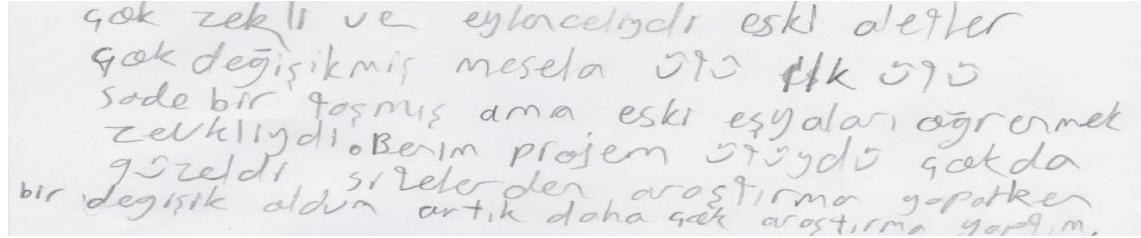 çok zekli ve eylenceliydi eski aletler
çok değişikmiş mesela ütü ilk ütü
sade bir taşmış ama eski eşyaları öğrenmek
zevkliydi. Benim projem ütüydü çokda
güzeldi sitelerden araştırma yaparken
bir değişik oldum artık daha çok araştırma yaptım.